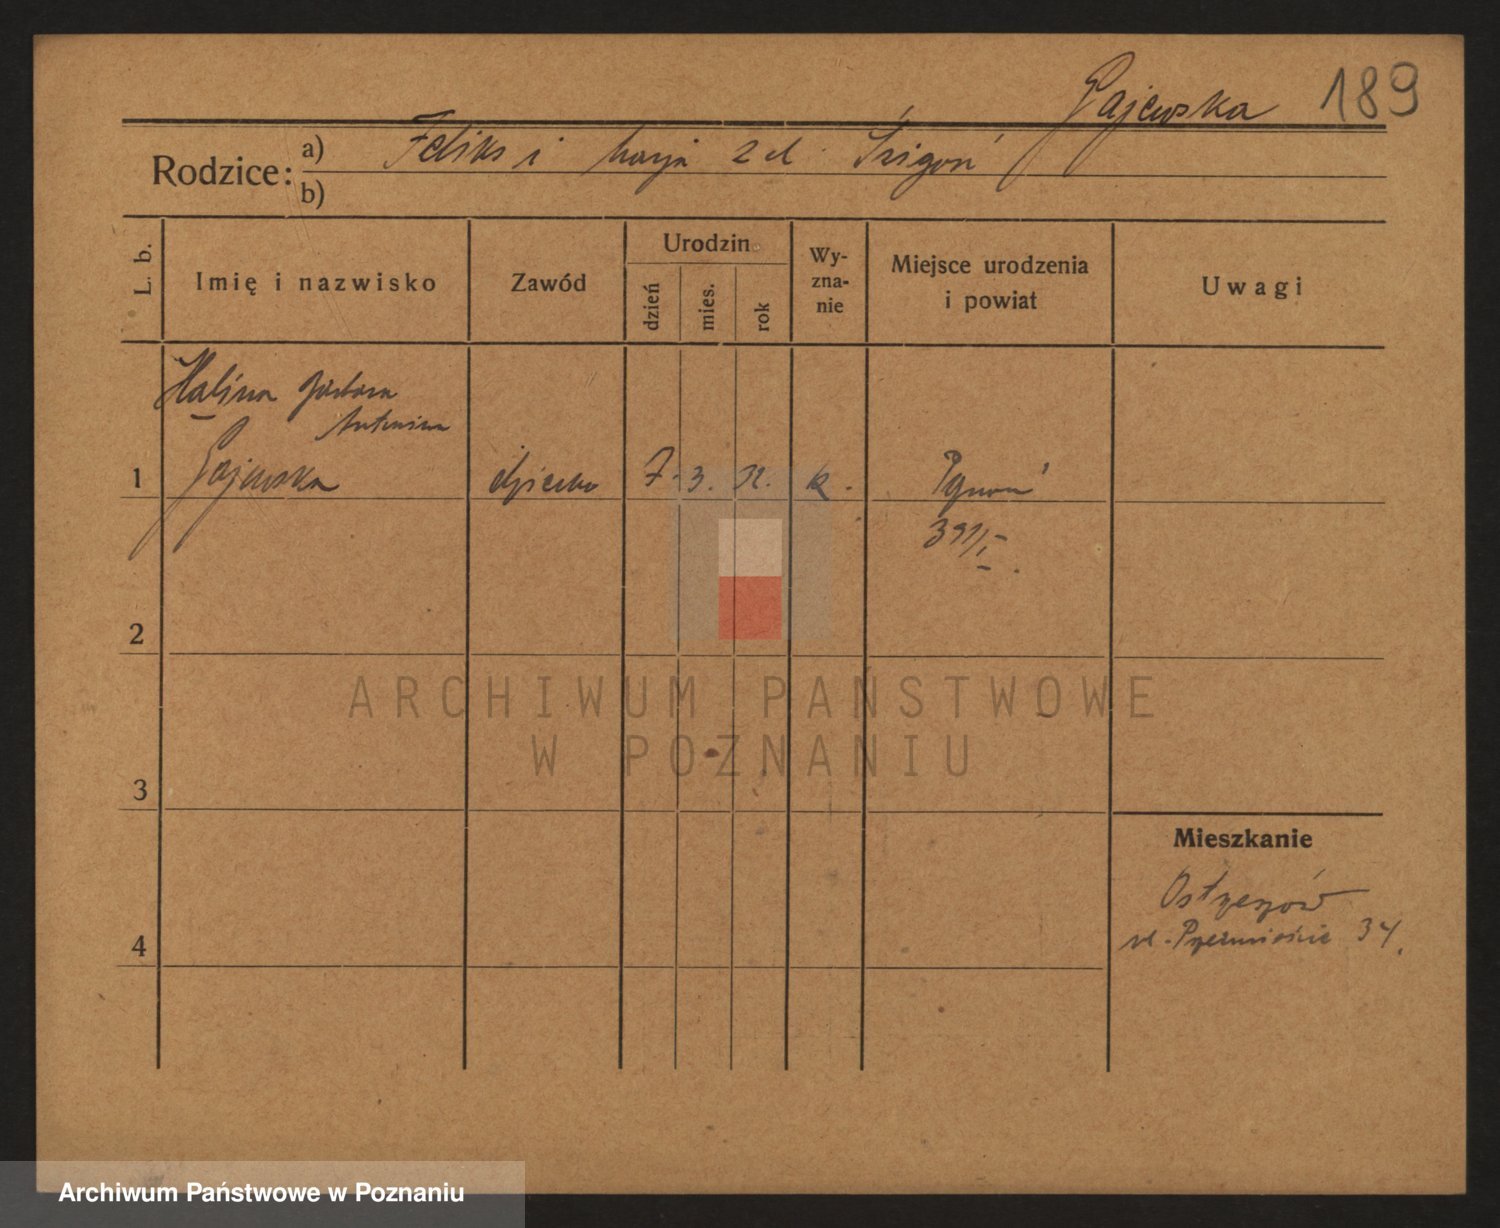 Gajewska 189
Rodzice: a) Feliks i Marja z d.
b)
L. b.
Imię i nazwisko
Zawód
Urodzin
dzień
mies.
rok
Wy-
zna-
nie
Miejsce urodzenia
i powiat
Uwagi
Halina
Antonina
1 Gajewska dziecko 7. 3. k. Poznań
391/I.
2
3
4
Mieszkanie
Ostrzeszów
ul. Przedmieście 34.
ARCHIWUM PAŃSTWOWE
W POZNANIU
Archiwum Państwowe w Poznaniu